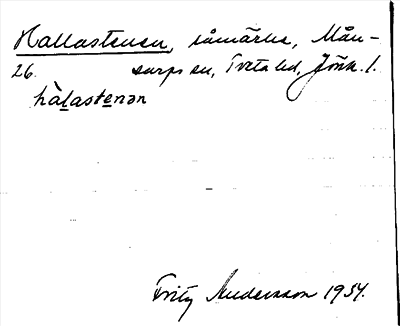 Hallastenen, råmärke, Mån-
26. sarps sn, Tveta hd, Jönk. l.
hàlastenən
Fritz Andersson 1934.